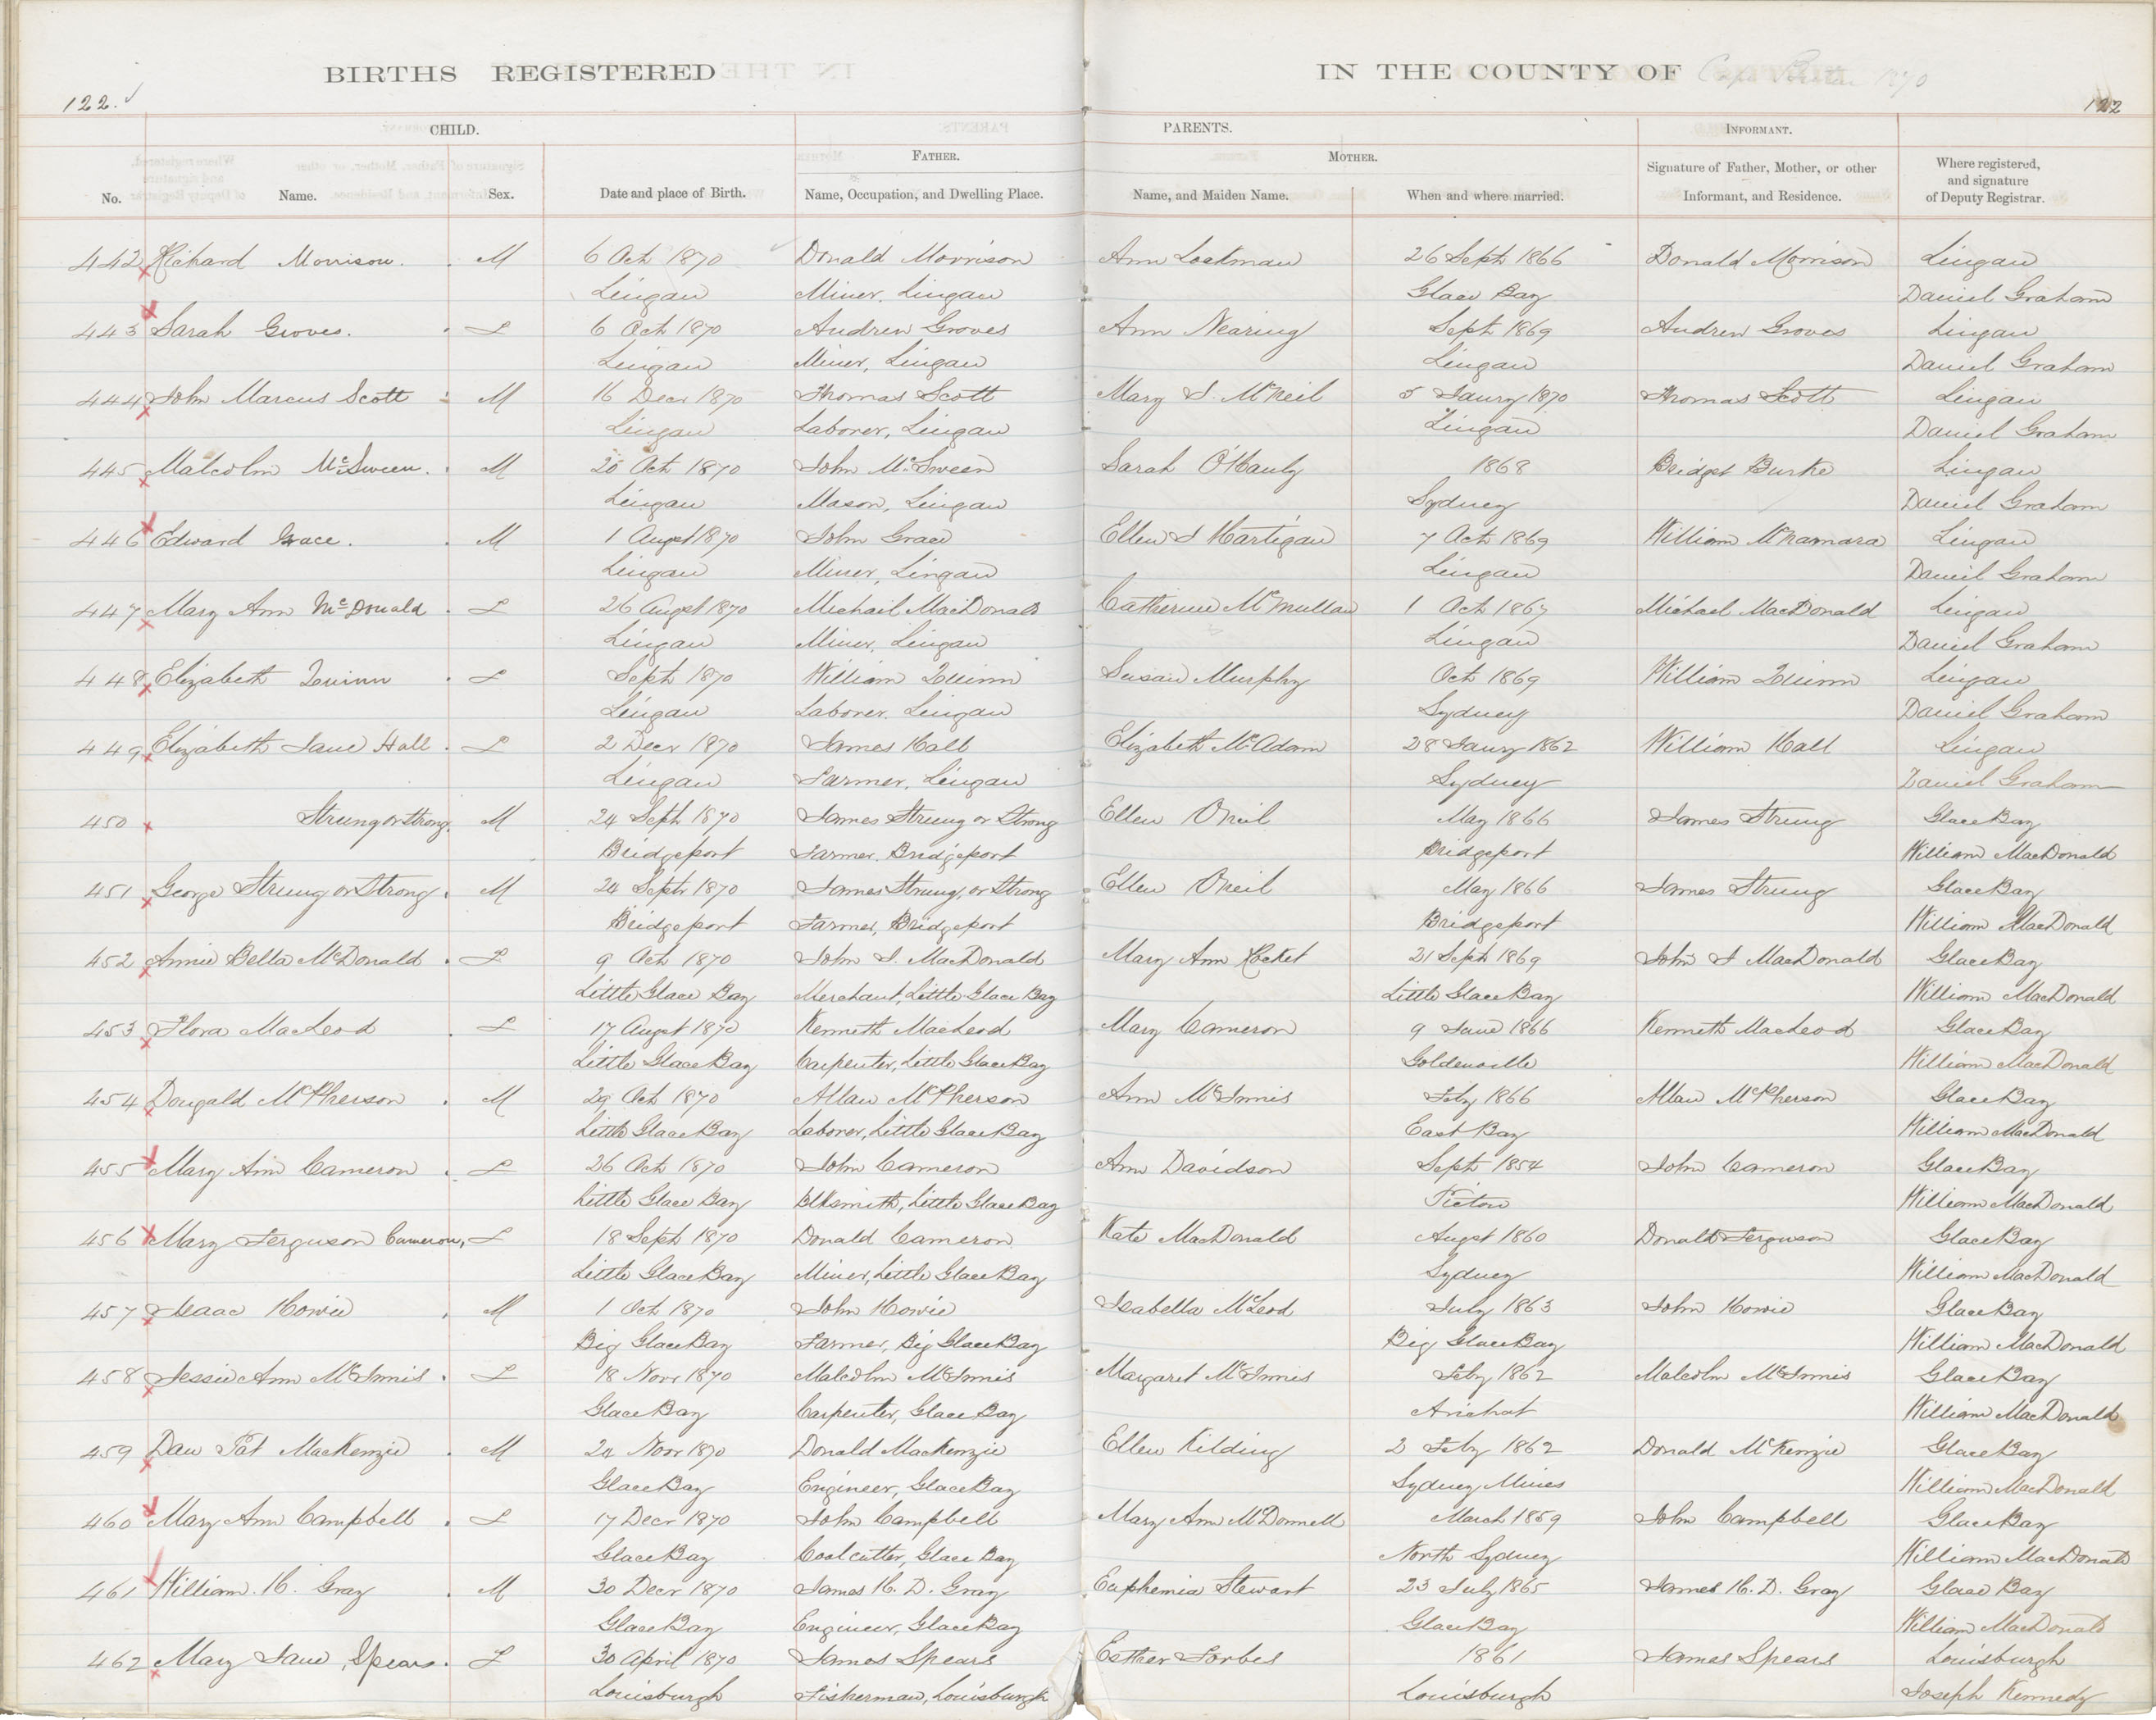 BIRTHS REGISTERED IN THE COUNTY OF Cape Breton 1870
122. 122
CHILD. PARENTS. INFORMANT.
FATHER. MOTHER.
No. Name. Sex. Date and place of Birth. Name, Occupation, and Dwelling Place. Name, and Maiden Name. When and where married. Signature of Father, Mother, or other Informant, and Residence. Where registered, and signature of Deputy Registrar.
442 Richard Morrison. M 6 Oct 1870 Donald Morrison Ann Lockman 26 Sept 1866 Donald Morrison Lingan
Lingan Miner, Lingan Glace Bay Daniel Graham
443 Sarah Groves. F 6 Oct 1870 Andrew Groves Ann Nearing Sept 1869 Andrew Groves Lingan
Lingan Miner, Lingan Lingan Daniel Graham
444 John Marcus Scott M 16 Decr 1870 Thomas Scott Mary J. McNeil 5 Jany 1870 Thomas Scott Lingan
Lingan Laborer, Lingan Lingan Daniel Graham
445 Malcolm McSween. M 20 Oct 1870 John McSween Sarah O'Hauly 1868 Bridget Burke Lingan
Lingan Mason, Lingan Sydney Daniel Graham
446 Edward Grace. M 1 Augst 1870 John Grace Ellen J Hartigan 7 Oct 1869 William McNamara Lingan
Lingan Miner, Lingan Lingan Daniel Graham
447 Mary Ann McDonald F 26 Augst 1870 Michail MacDonald Catherine McMullan 1 Oct 1867 Michael MacDonald Lingan
Lingan Miner, Lingan Lingan Daniel Graham
448 Elizabeth Quinn F Sept 1870 William Quinn Susan Murphy Oct 1869 William Quinn Lingan
Lingan Laborer, Lingan Sydney Daniel Graham
449 Elizabeth Jane Hall F 2 Decr 1870 James Hall Elizabeth McAdam 28 Jany 1862 William Hall Lingan
Lingan Farmer, Lingan Sydney Daniel Graham
450 Strung or Strong. M 24 Sept 1870 James Strung or Strong Ellen ONeil May 1866 James Strung Glace Bay
Bridgeport Farmer, Bridgeport Bridgeport William MacDonald
451 George Strung or Strong. M 24 Sept 1870 James Strung, or Strong Ellen ONeil May 1866 James Strung Glace Bay
Bridgeport Farmer, Bridgeport Bridgeport William MacDonald
452 Annie Bella McDonald F 9 Oct 1870 John J. MacDonald Mary Ann Rocket 21 Sept 1869 John J MacDonald Glace Bay
Little Glace Bay Merchant, Little Glace Bay Little Glace Bay William MacDonald
453 Flora MacLeod F 17 Augst 1870 Kenneth MacLeod Mary Cameron 9 June 1866 Kenneth MacLeod Glace Bay
Little Glace Bay Carpenter, Little Glace Bay Goldenville William MacDonald
454 Dougald McPherson M 29 Oct 1870 Allan McPherson Ann McInnis Feby 1866 Allan McPherson Glace Bay
Little Glace Bay Laborer, Little Glace Bay East Bay William MacDonald
455 Mary Ann Cameron F 26 Oct 1870 John Cameron Ann Davidson Sept 1854 John Cameron Glace Bay
Little Glace Bay Blksmith, Little Glace Bay Pictou William MacDonald
456 Mary Ferguson Cameron, F 18 Sept 1870 Donald Cameron Kate MacDonald Augst 1860 Donald Ferguson Glace Bay
Little Glace Bay Miner, Little Glace Bay Sydney William MacDonald
457 Isaac Howie M 1 Oct 1870 John Howie Isabella McLeod July 1863 John Howie Glace Bay
Big Glace Bay Farmer, Big Glace Bay Big Glace Bay William MacDonald
458 Jessie Ann McInnis. F 18 Novr 1870 Malcolm McInnis Margaret McInnis Feby 1862 Malcolm McInnis Glace Bay
Glace Bay Carpenter, Glace Bay Arichat William MacDonald
459 Dan Pat MacKenzie M 24 Novr 1870 Donald MacKenzie Ellen Kilding 2 Feby 1862 Donald McKenzie Glace Bay
Glace Bay Engineer, Glace Bay Sydney Mines William MacDonald
460 Mary Ann Campbell F 17 Decr 1870 John Campbell Mary Ann McDonnell March 1859 John Campbell Glace Bay
Glace Bay Coal cutter, Glace Bay North Sydney William MacDonald
461 William H. Gray M 30 Decr 1870 James H. D. Gray Euphemia Stewart 23 July 1865 James H. D. Gray Glace Bay
Glace Bay Engineer, Glace Bay Glace Bay William MacDonald
462 Mary Jane Spears. F 30 April 1870 James Spears Esther Forbes 1861 James Spears Louisburgh
Louisburgh Fisherman, Louisburgh Louisburgh Joseph Kennedy